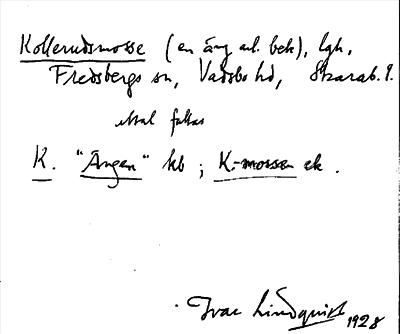 Kollerudsmosse (en äng enl. bek), lgh,
Fredsbergs sn, Vadsbo hd, Skarab. l.
uttal fattas
K. "Ängen" kb ; K.-mossen ek .
Ivar Lindquist 1928